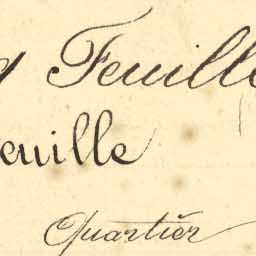 Feuille
euille
Quartier